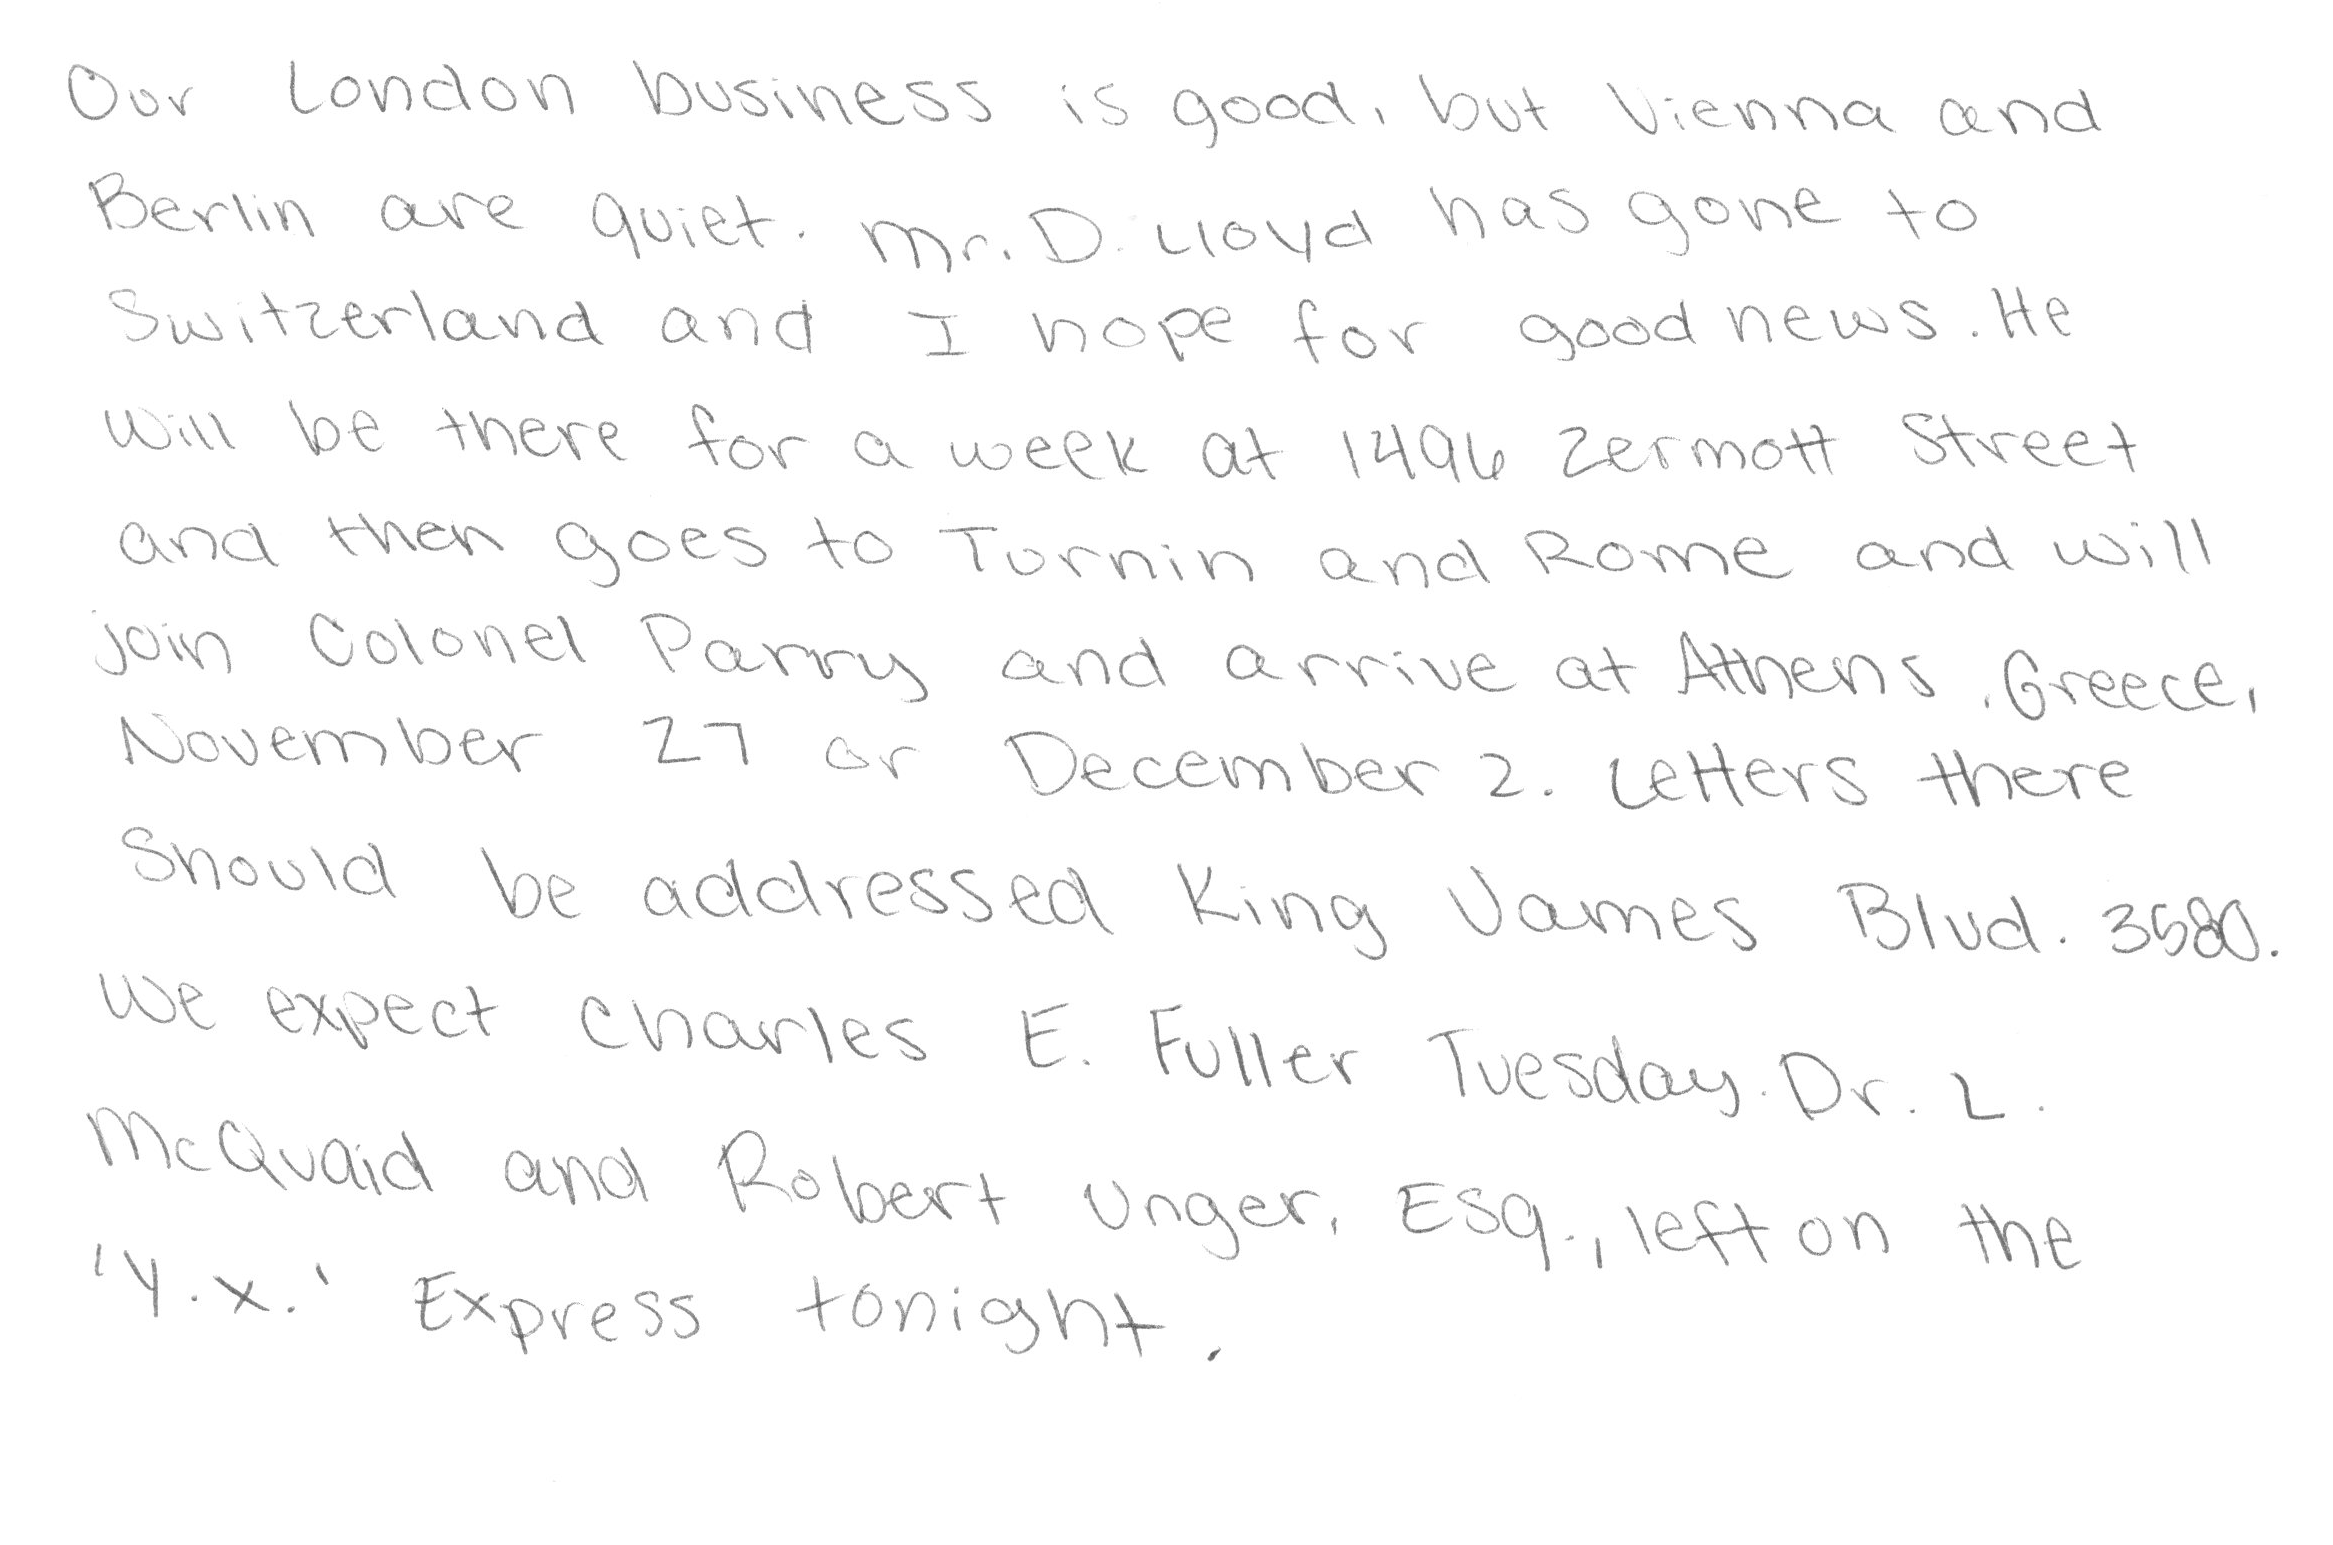 Our London business is good, but Vienna and
Berlin are quiet. Mr. D. Lloyd has gone to
Switzerland and I hope for good news. He
will be there for a week at 1496 Zermott Street
and then goes to Turnin and Rome and will
join Colonel Parry and arrive at Athens, Greece,
November 27 or December 2. Letters there
should be addressed King James Blvd. 3580.
We expect Charles E. Fuller Tuesday. Dr. L.
McQuaid and Robert Unger, Esq., left on the
'Y.X.' Express tonight.